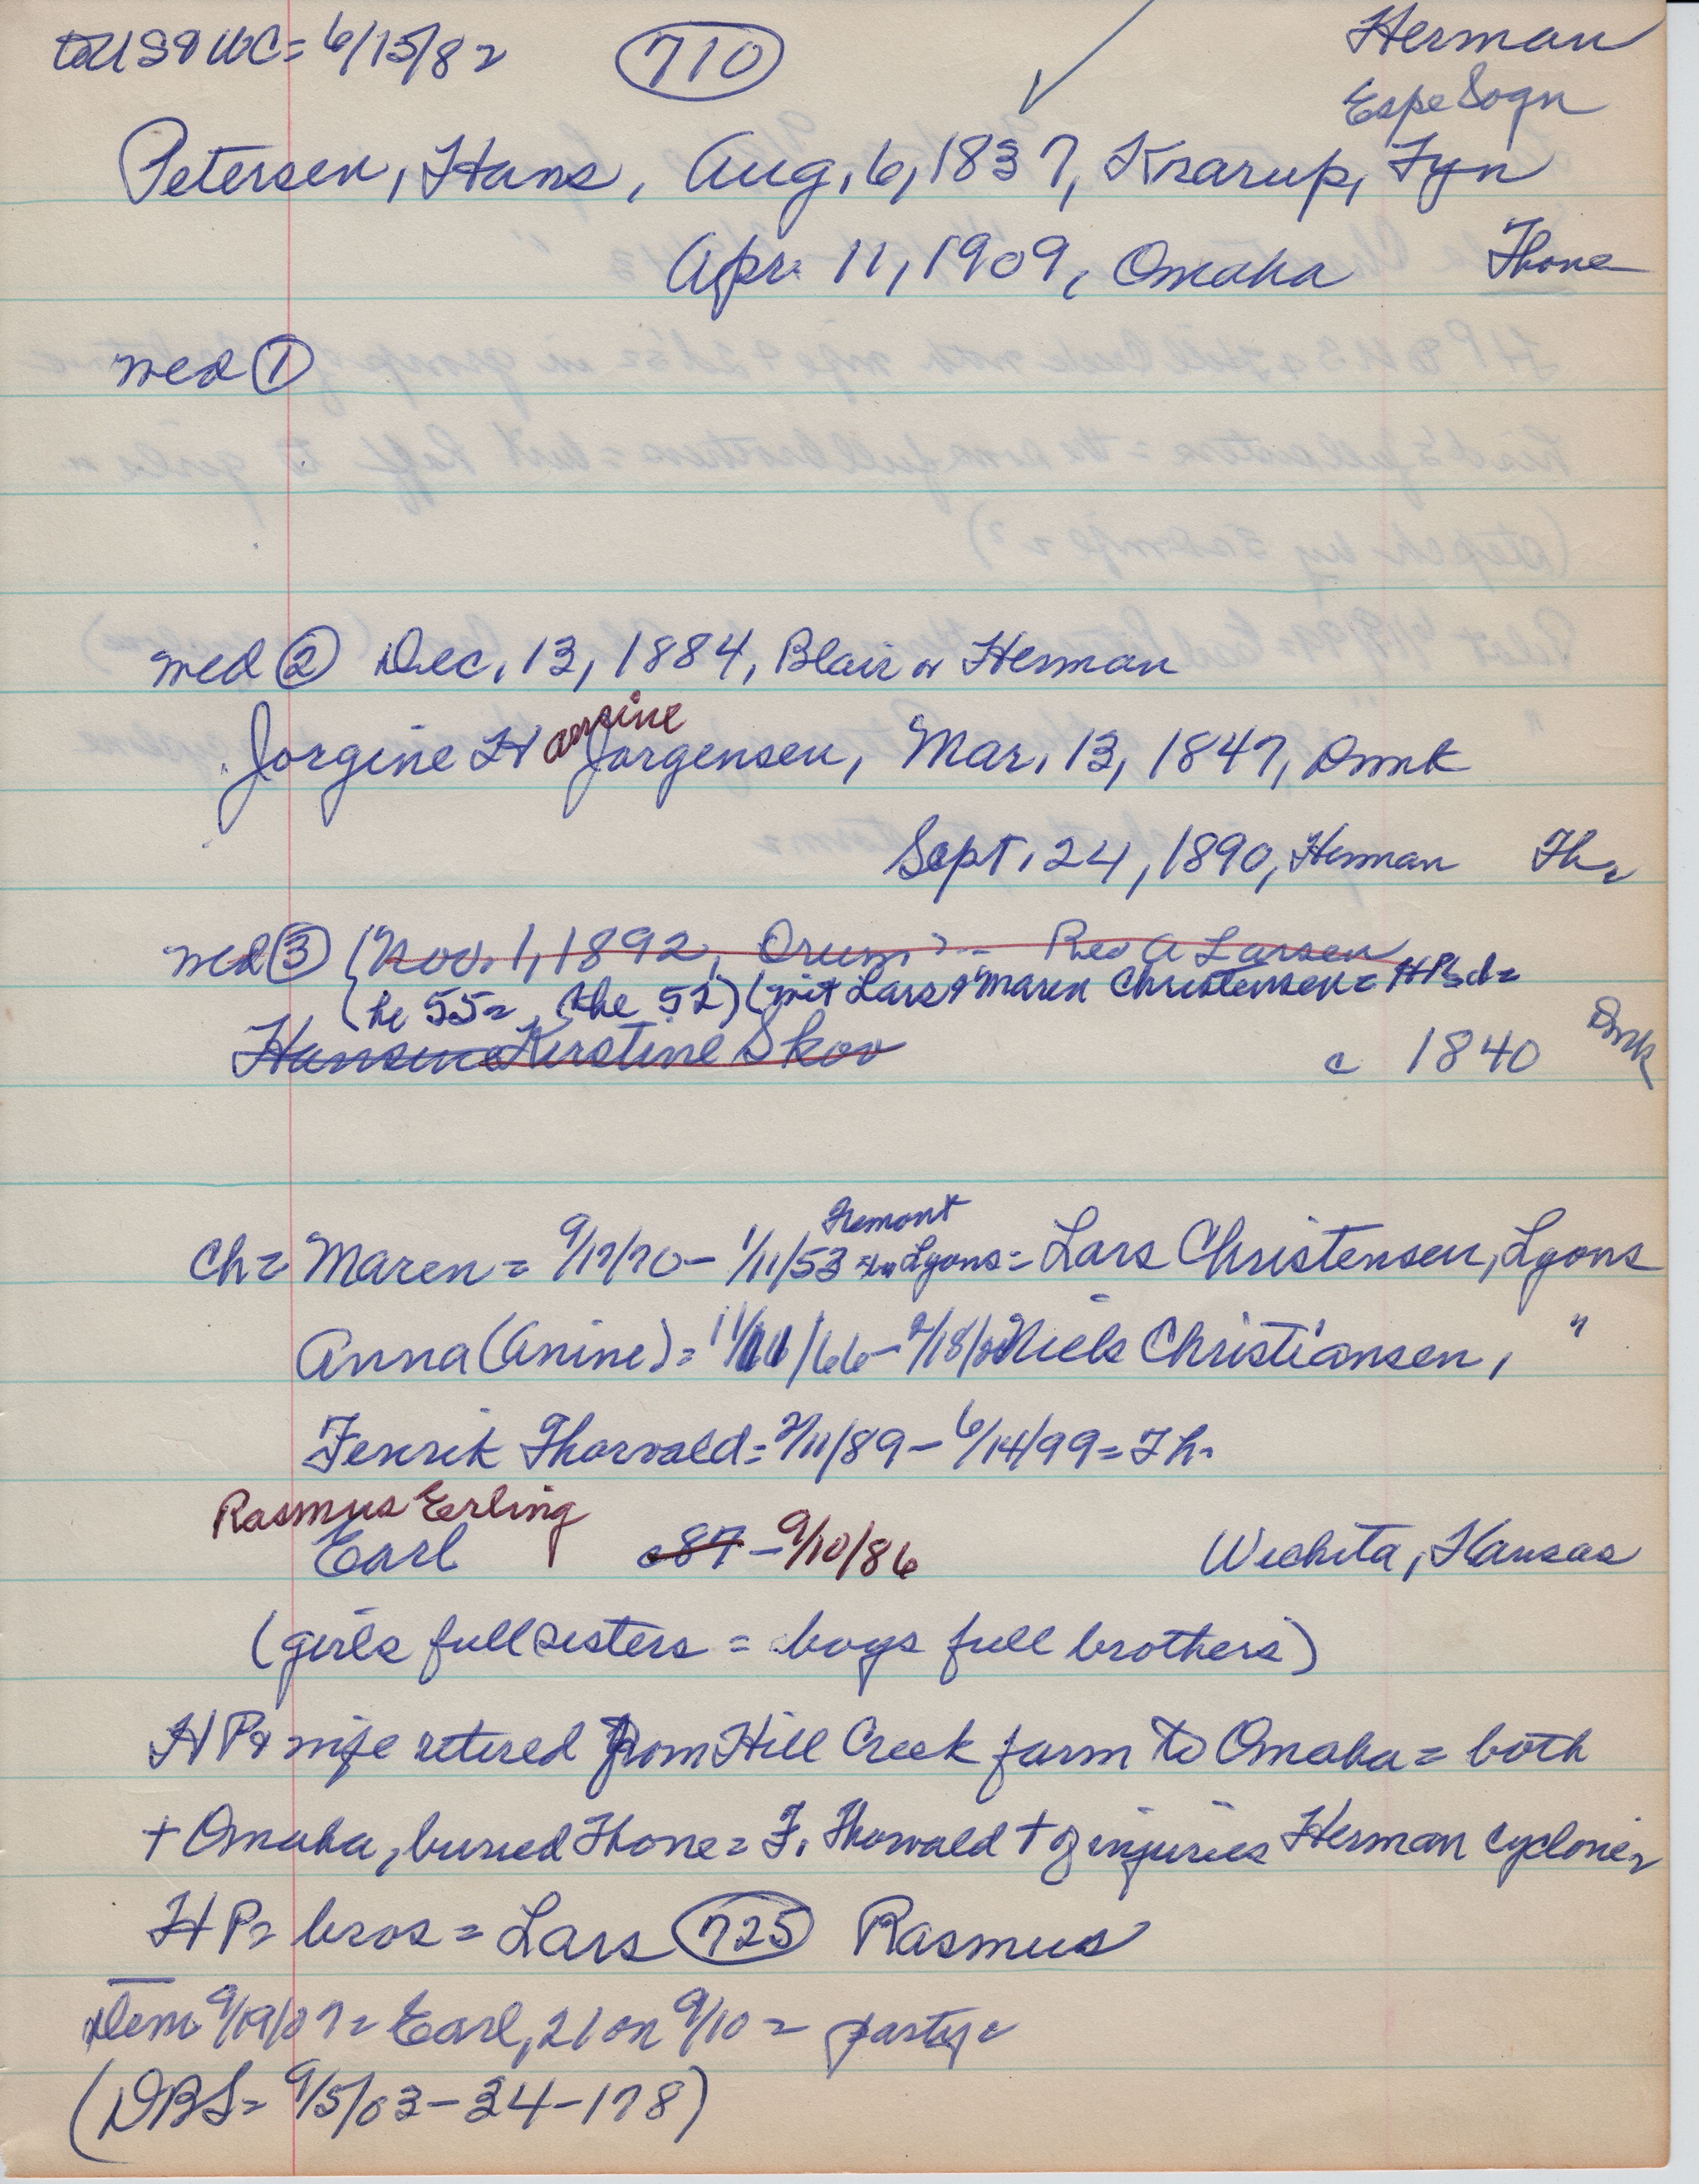 to US & WC = 6/15/82 710 Herman
Espe Sogn
Petersen, Hans, Aug. 6, 1837, Krarup, Fyn
Apr. 11, 1909, Omaha Thone
wed ①
wed ② Dec. 13, 1884, Blair or Herman
Jorgine H ansine Jorgensen, Mar. 13, 1847, Dnmk
Sept. 24, 1890, Herman Th.
wed ③ (Nov. 1, 1892, Orum, = Rev A Larsen
(he 55 = she 52) (wit Lars & Maren Christensen = HP's d =
Hansine Kirstine Skov c 1840 Dmk
Fremont
Ch = Maren = 9/17/70 - 1/11/53 Lyons = Lars Christensen, Lyons
Anna (Anine) = 11/ /66 - Niels Christiansen, "
Fenrik Thorvald = 2/11/89 - 6/14/99 = Th.
Rasmus Eerling
Earl c87 - 9/10/86 Wichita, Kansas
(girls full sisters = boys full brothers)
HP & wife retired from Hill Creek farm to Omaha = both
+ Omaha, buried Thone = F. Thorvald + of injuries Herman cyclone,
HP = bros = Lars 725 Rasmus
Dem 9/19/07 = Earl, 21 on 9/10 = party
(DBS = 9/5/03 - 34 - 178)